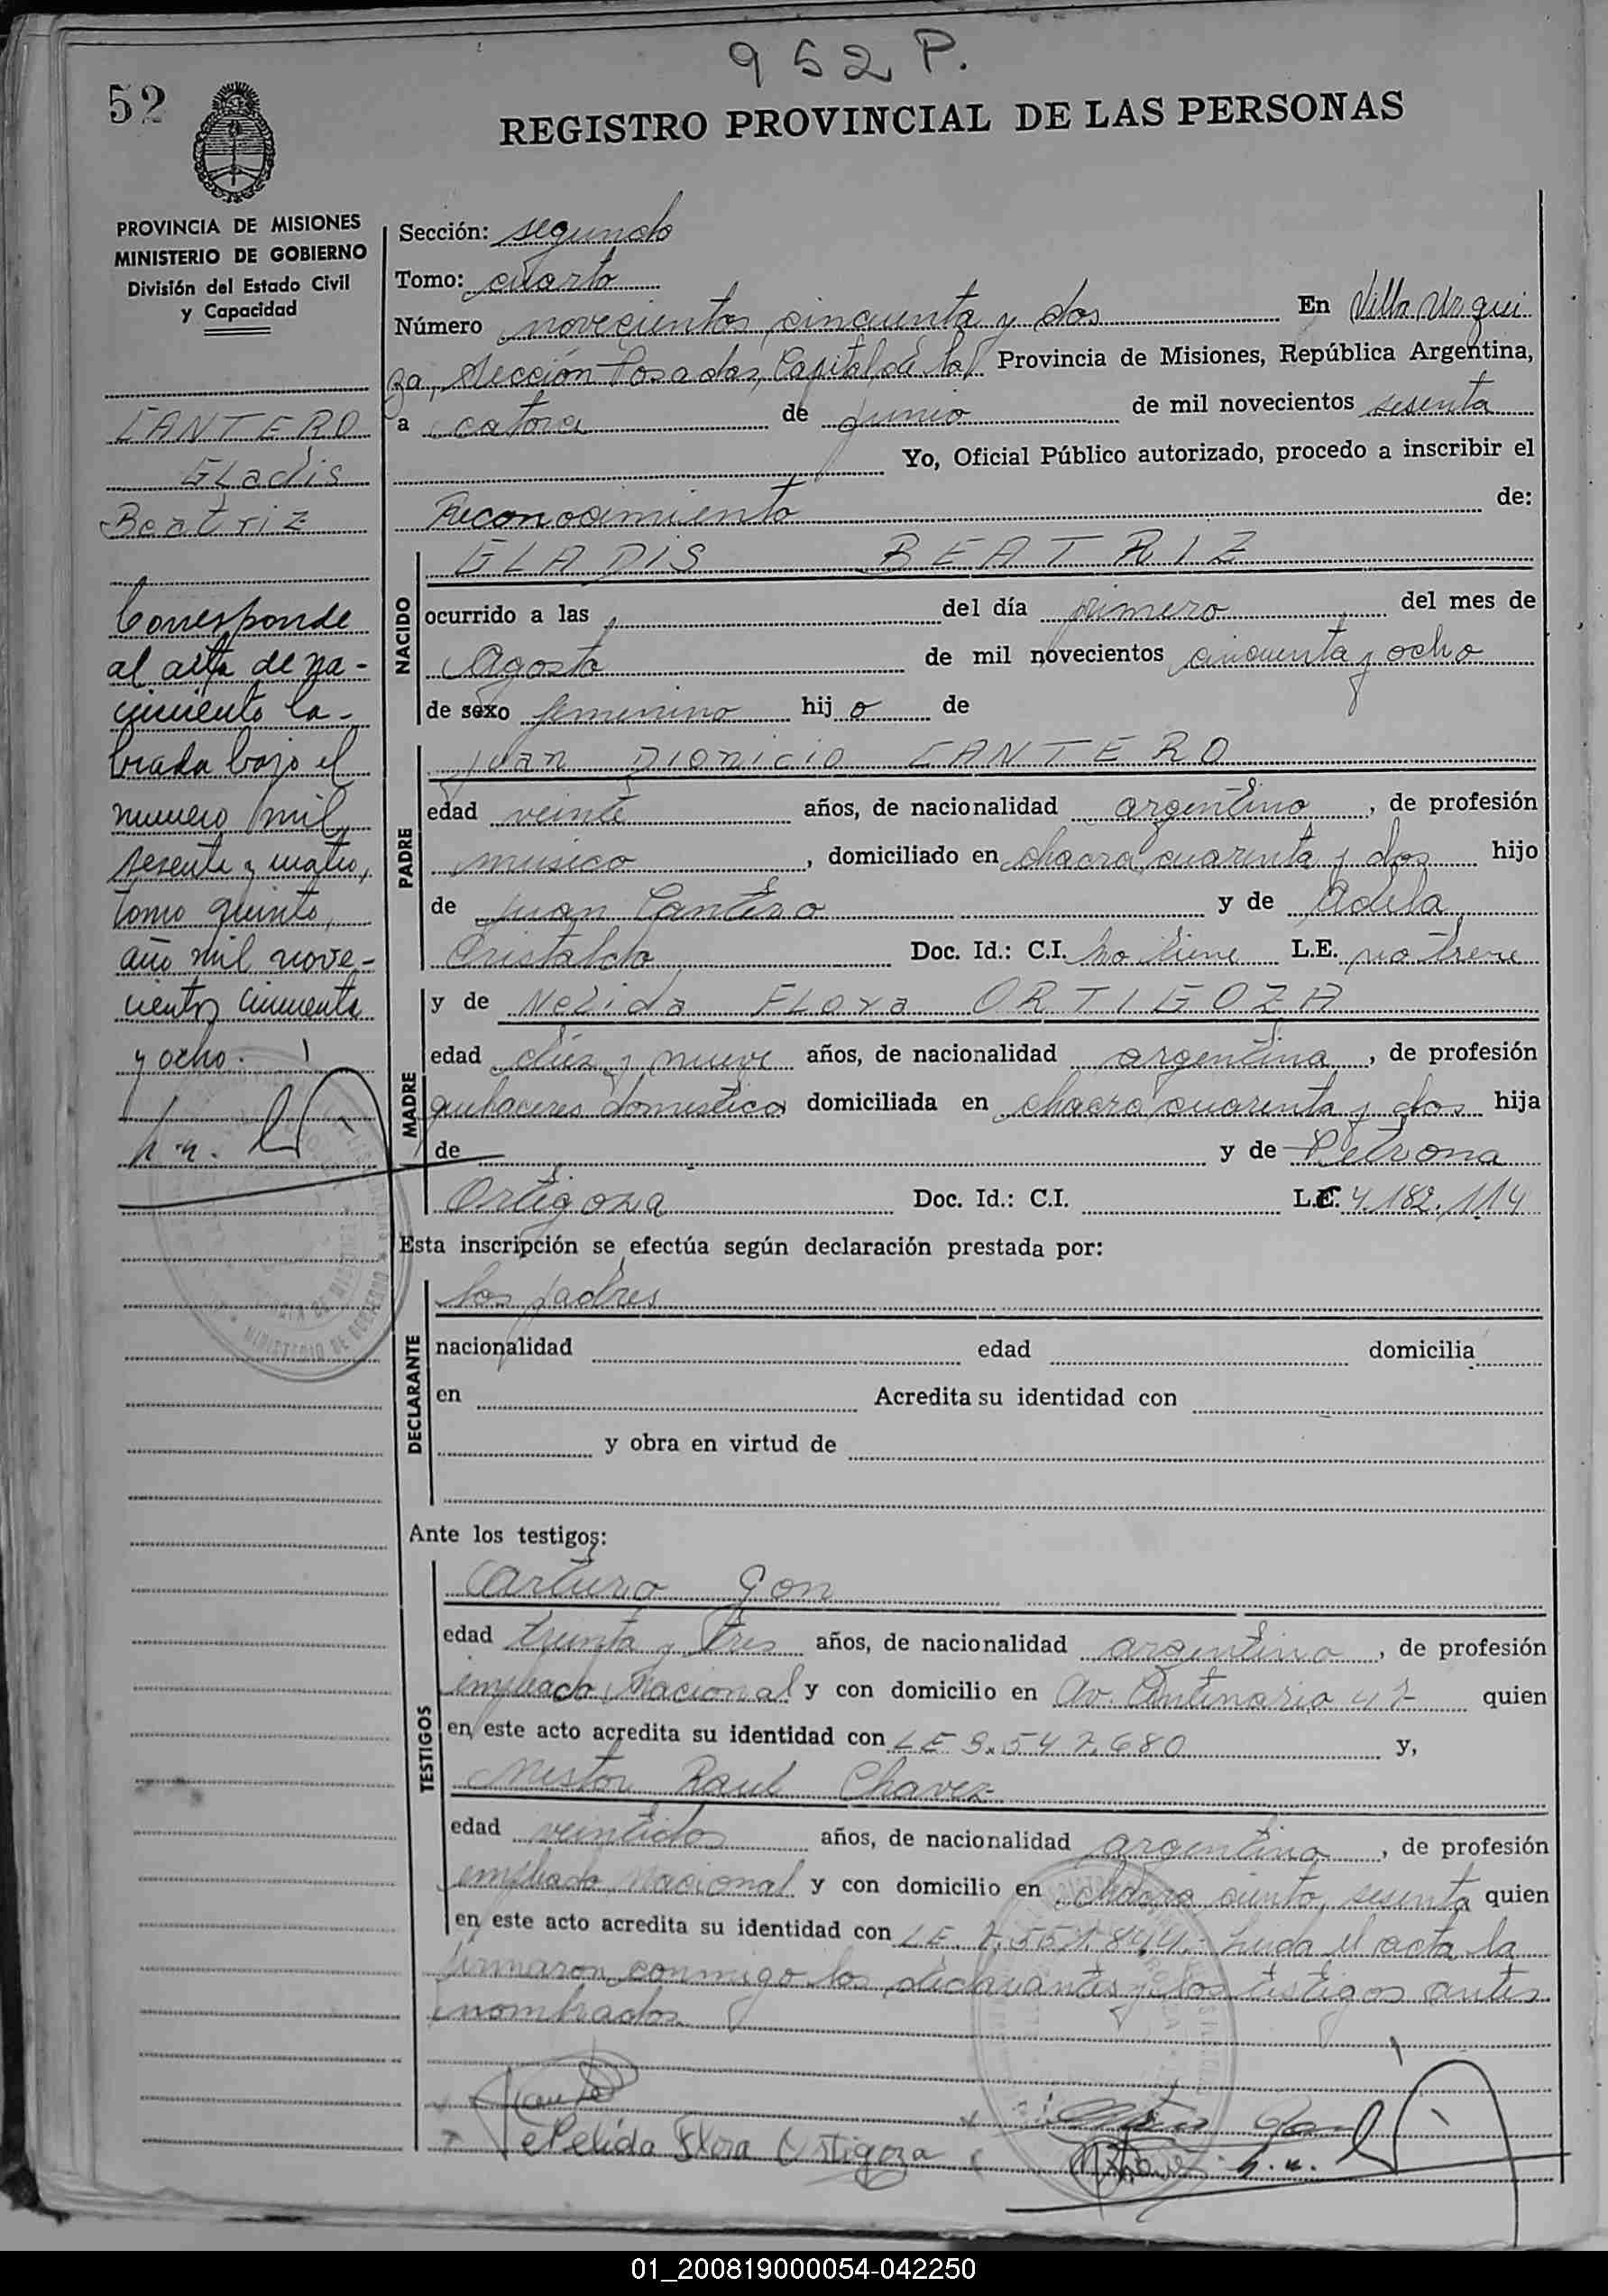 952 P.
52
REGISTRO PROVINCIAL DE LAS PERSONAS
PROVINCIA DE MISIONES
MINISTERIO DE GOBIERNO
División del Estado Civil
y Capacidad
CANTERO
GLadis
Beatriz
Corresponde
al acta de na-
cimiento la-
brada bajo el
numero mil
sesenta y cuatro,
tomo quinto,
año mil nove-
cientos cincuenta
y ocho.
h.n.
Sección: segunda
Tomo: cuarto
Número novecientos cincuenta y dos En Villa Urqui
za, Sección Posadas, Capital de la Provincia de Misiones, República Argentina,
a catorce de junio de mil novecientos sesenta
Yo, Oficial Público autorizado, procedo a inscribir el
Reconocimiento de:
NACIDO
GLADIS BEATRIZ
ocurrido a las del día primero del mes de
Agosto de mil novecientos cincuenta y ocho
de sexo femenino hij a de
PADRE
Juan Dionicio CANTERO
edad veinte años, de nacionalidad argentino, de profesión
musico, domiciliado en chacra cuarenta y dos hijo
de Juan Cantero y de Adela
Cristaldo Doc. Id.: C.I. no tiene L.E. no tiene
MADRE
y de Nelida Flora ORTIGOZA
edad diez y nueve años, de nacionalidad argentina, de profesión
quehaceres domestica domiciliada en chacra cuarenta y dos hija
de y de Petrona
Ortigoza Doc. Id.: C.I. L.C. 4.182.114
Esta inscripción se efectúa según declaración prestada por:
DECLARANTE
los padres
nacionalidad edad domicilia
en Acredita su identidad con
y obra en virtud de
Ante los testigos:
TESTIGOS
Arturo Gon
edad treinta y tres años, de nacionalidad argentino, de profesión
empleado Nacional y con domicilio en Av. Centenario 47 quien
en este acto acredita su identidad con LE 3.547.680 y,
Nestor Raul Chavez
edad veintidos años, de nacionalidad argentino, de profesión
empleado Nacional y con domicilio en chacra ciento sesenta quien
en este acto acredita su identidad con LE. 7.557.844.- Leida el acta la
firmaron conmigo los declarantes y los testigos antes
nombrados
Nelida Flora Ortigoza
h.n.
01_200819000054-042250